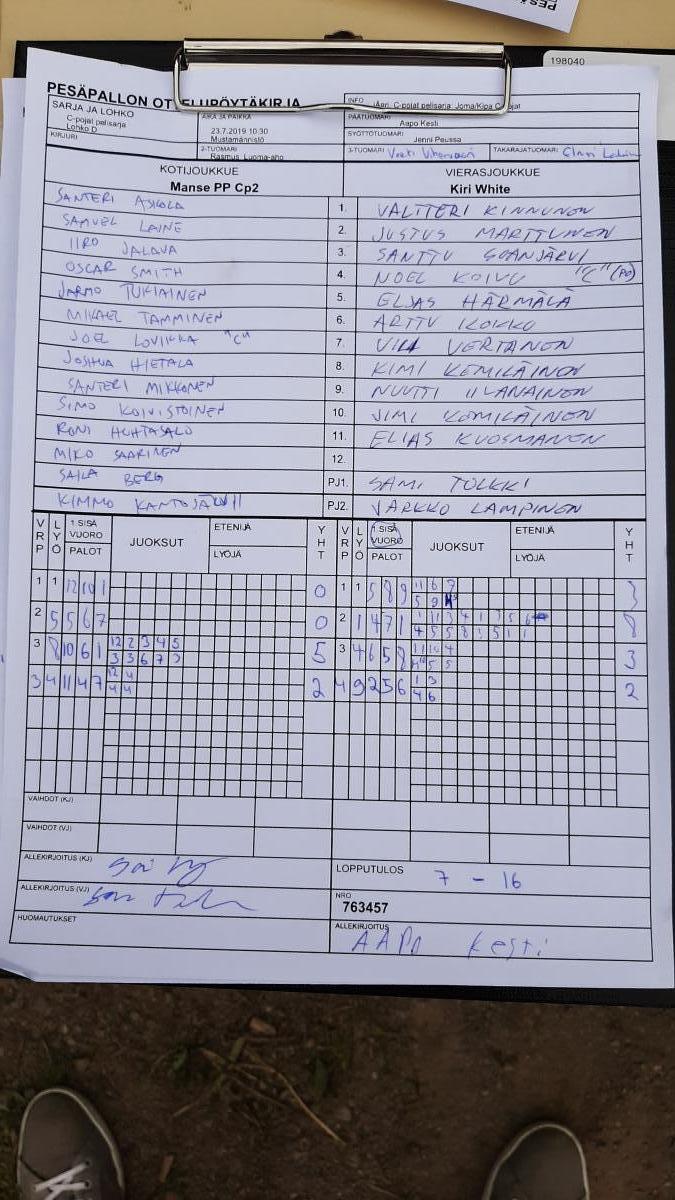 198040
PESÄPALLON OTTELUPÖYTÄKIRJA
SARJA JA LOHKO
C-pojat pelisarja
Lohko D
KIRJURI
AIKA JA PAIKKA
23.7.2019 10:30
Mustamännistö
2-TUOMARI
Rasmus Luoma-aho
INFO
C-pojat pelisarja: Joma/Kipa C-pojat
PÄÄTUOMARI
Aapo Kesti
SYÖTTÖTUOMARI
Jenni Peussa
3-TUOMARI
TAKARAJATUOMARI
KOTIJOUKKUE
Manse PP Cp2
VIERASJOUKKUE
Kiri White
SANTERI ASKOLA 1. VALTTERI KINNUNEN
SAMUEL LAINE 2. JUSTUS MARTTUNEN
IIRO JALAVA 3. SANTTU
OSCAR SMITH 4. NOEL KOIVU "C" (PO)
JARMO TUKIAINEN 5. ELJAS HÄRMÄLÄ
MIKAEL TAMMINEN 6. ARTTU KOKKO
JOEL LOVIKKA "C" 7. VILI VERTANEN
JOSHUA HIETALA 8. KIMI KEMILÄINEN
SANTERI MIKKONEN 9. NUUTTI IIVANAINEN
SIMO KOIVISTOINEN 10. JIMI KEMILÄINEN
RONI HUHTASALO 11. ELIAS KUOSMANEN
MIKO SAARINEN 12.
SAILA BERG PJ1. SAMI TOLKKI
KIMMO KANTOJÄRVI PJ2. JARKKO LAMPINEN
VRP LYÖ 1 SISÄ VUORO PALOT JUOKSUT ETENIJÄ LYÖJÄ YHT VRP LYÖ 1 SISÄ VUORO PALOT JUOKSUT ETENIJÄ LYÖJÄ YHT
1 1 12 10 1 0 1 1 5 8 9 11 6 7 3
5 9
2 5 5 6 7 0 2 1 4 7 1 8
3 8 10 6 1 12 2 3 4 5 5 3 4 6 5 8 11 10 4 3
3 3 6 7 5 5
3 4 11 4 7 12 4 2 4 9 2 5 6 1 3 2
4 4 4 6
VAIHDOT (KJ)
VAIHDOT (VJ)
ALLEKIRJOITUS (KJ)
ALLEKIRJOITUS (VJ)
HUOMAUTUKSET
LOPPUTULOS 7 - 16
NRO
763457
ALLEKIRJOITUS
AAPO Kesti